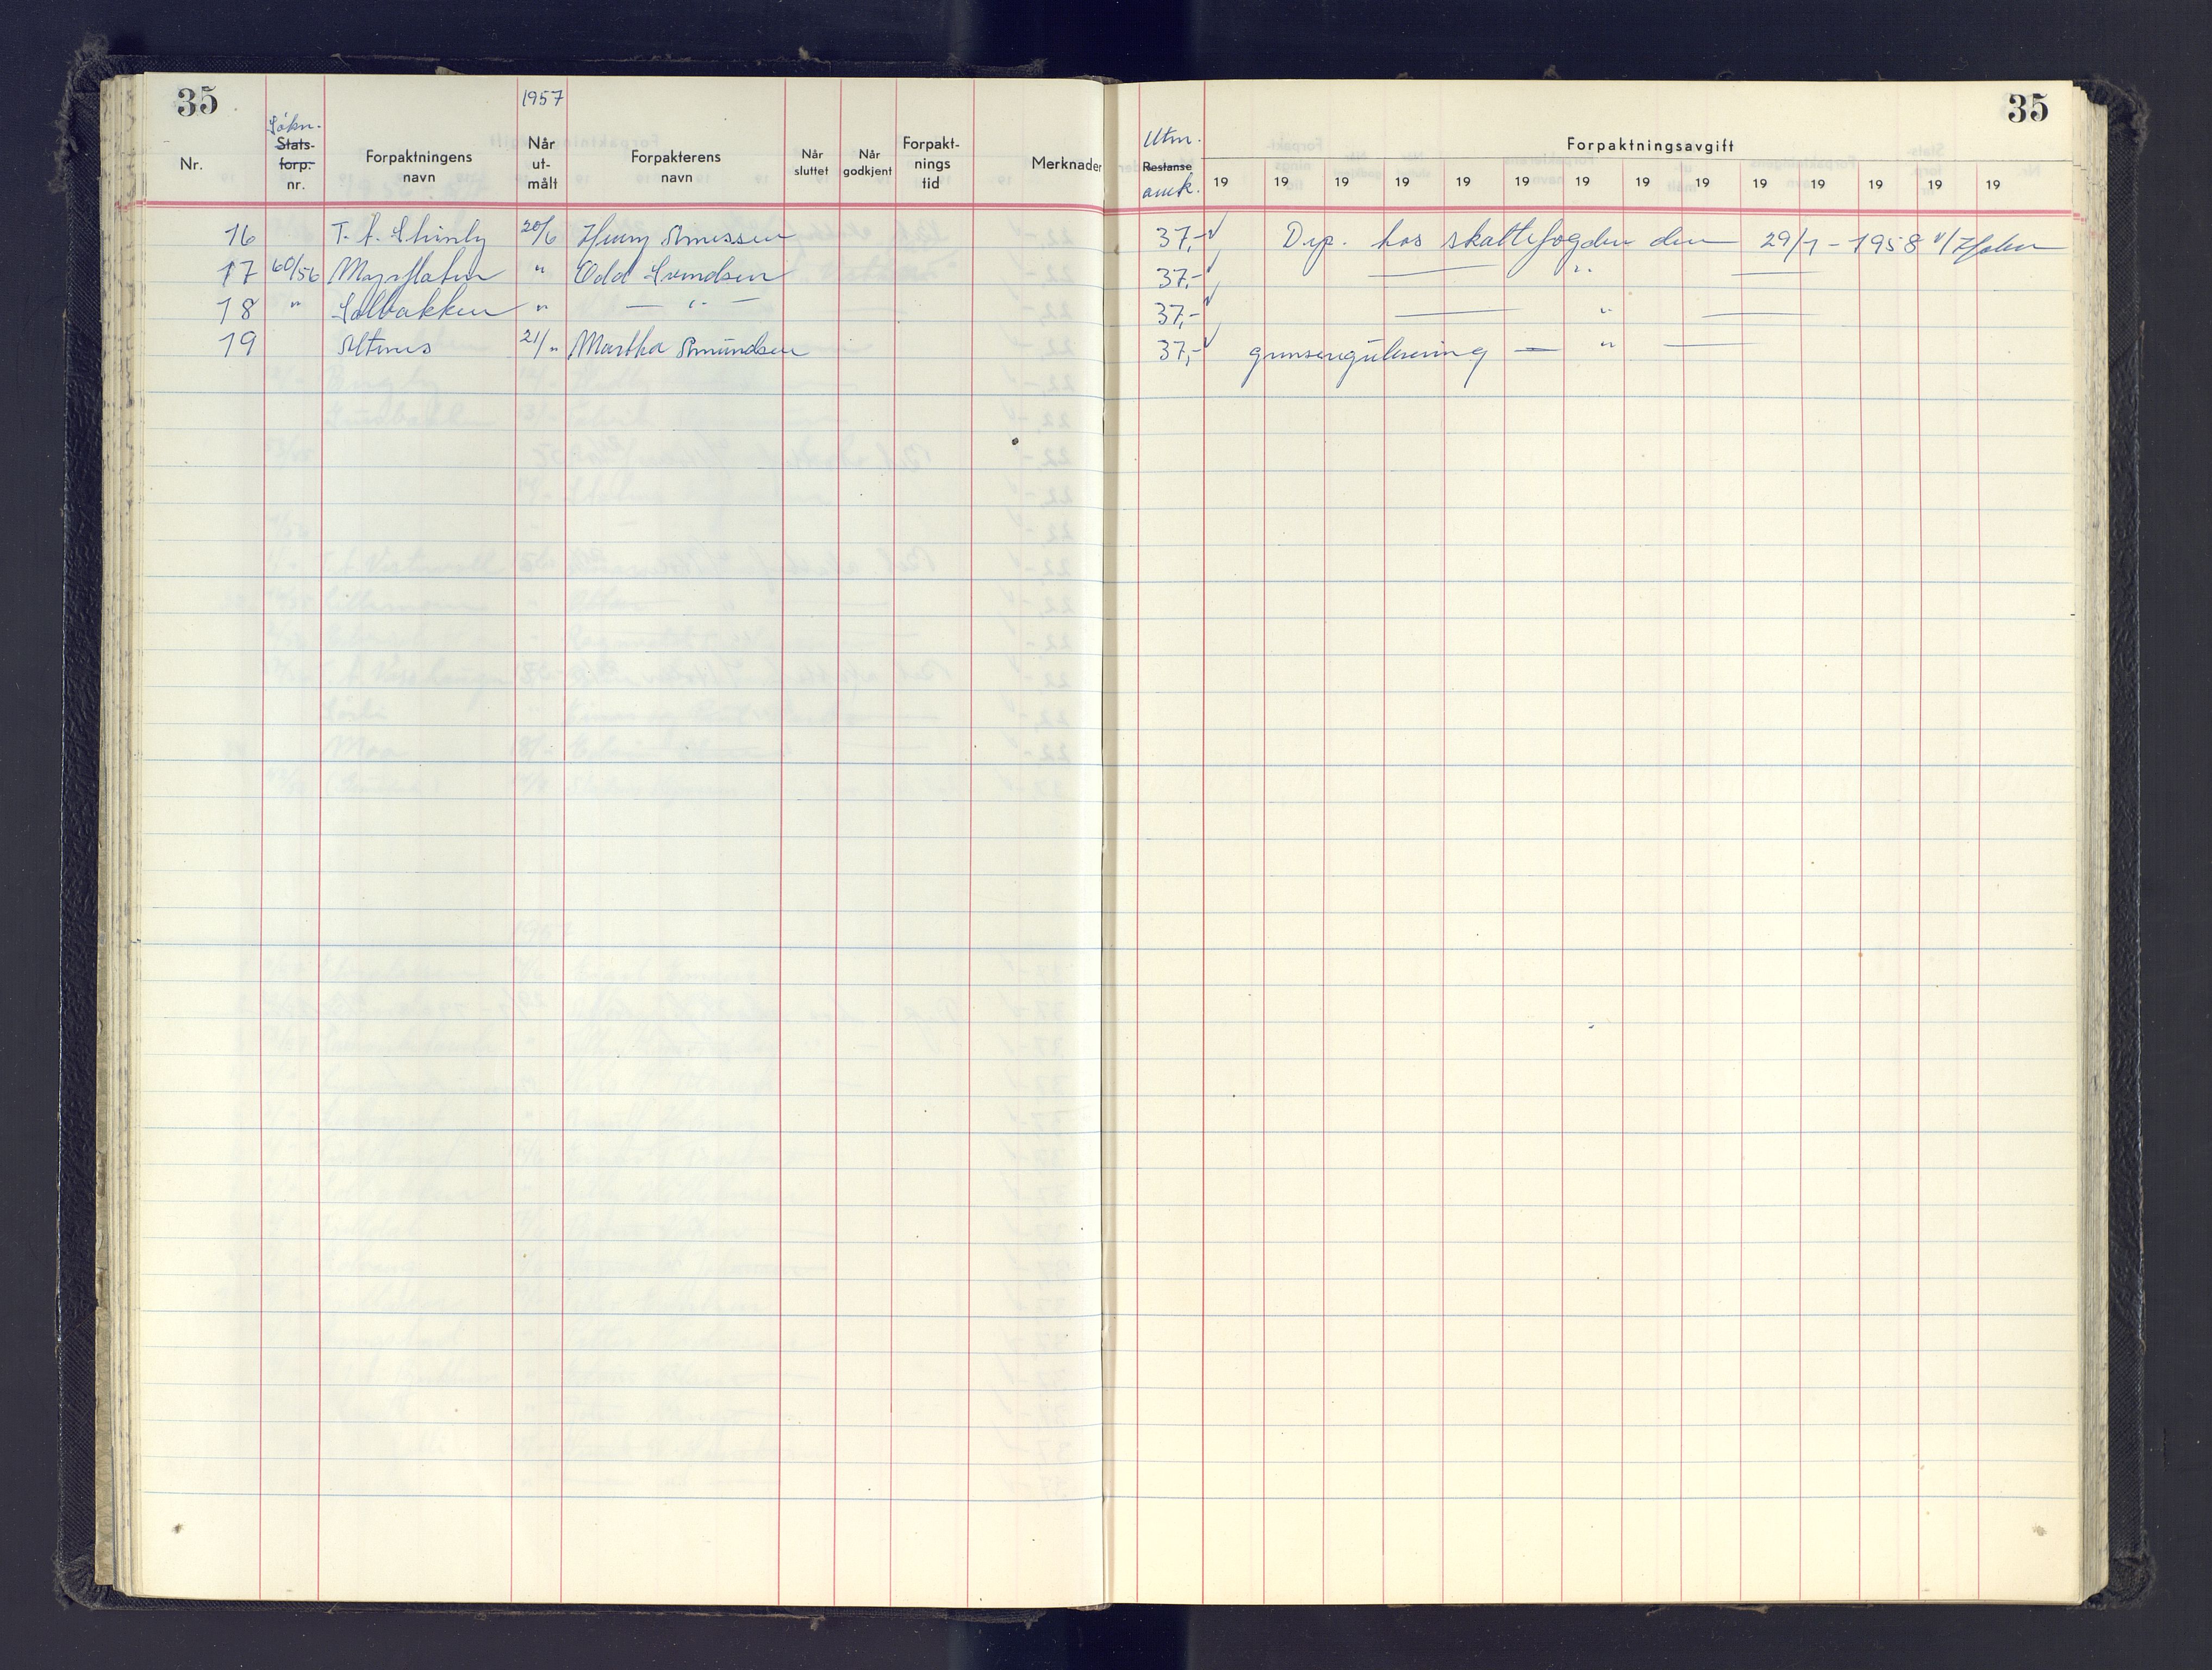 35
1957
Søkn.
Stats-forp. nr.
Nr.
Forpaktningens navn
Når ut-målt
Forpakterens navn
Når sluttet
Når godkjent
Forpakt-nings tid
Merknader
16 T. A. 20/6 Arnessen
17 60/56 Mosflaten " Odd Svendsen
18 " Solbakken " — " —
19 Altnes 21/" Martha Amundsen
35
Utm.
Restanse
ansk.
Forpaktningsavgift
19 19 19 19 19 19 19 19 19 19 19 19 19 19
37,- Dep. hos skattefogden den 29/1 - 1958
37,- — " —
37,- — " —
37,- grenseregulering — " —